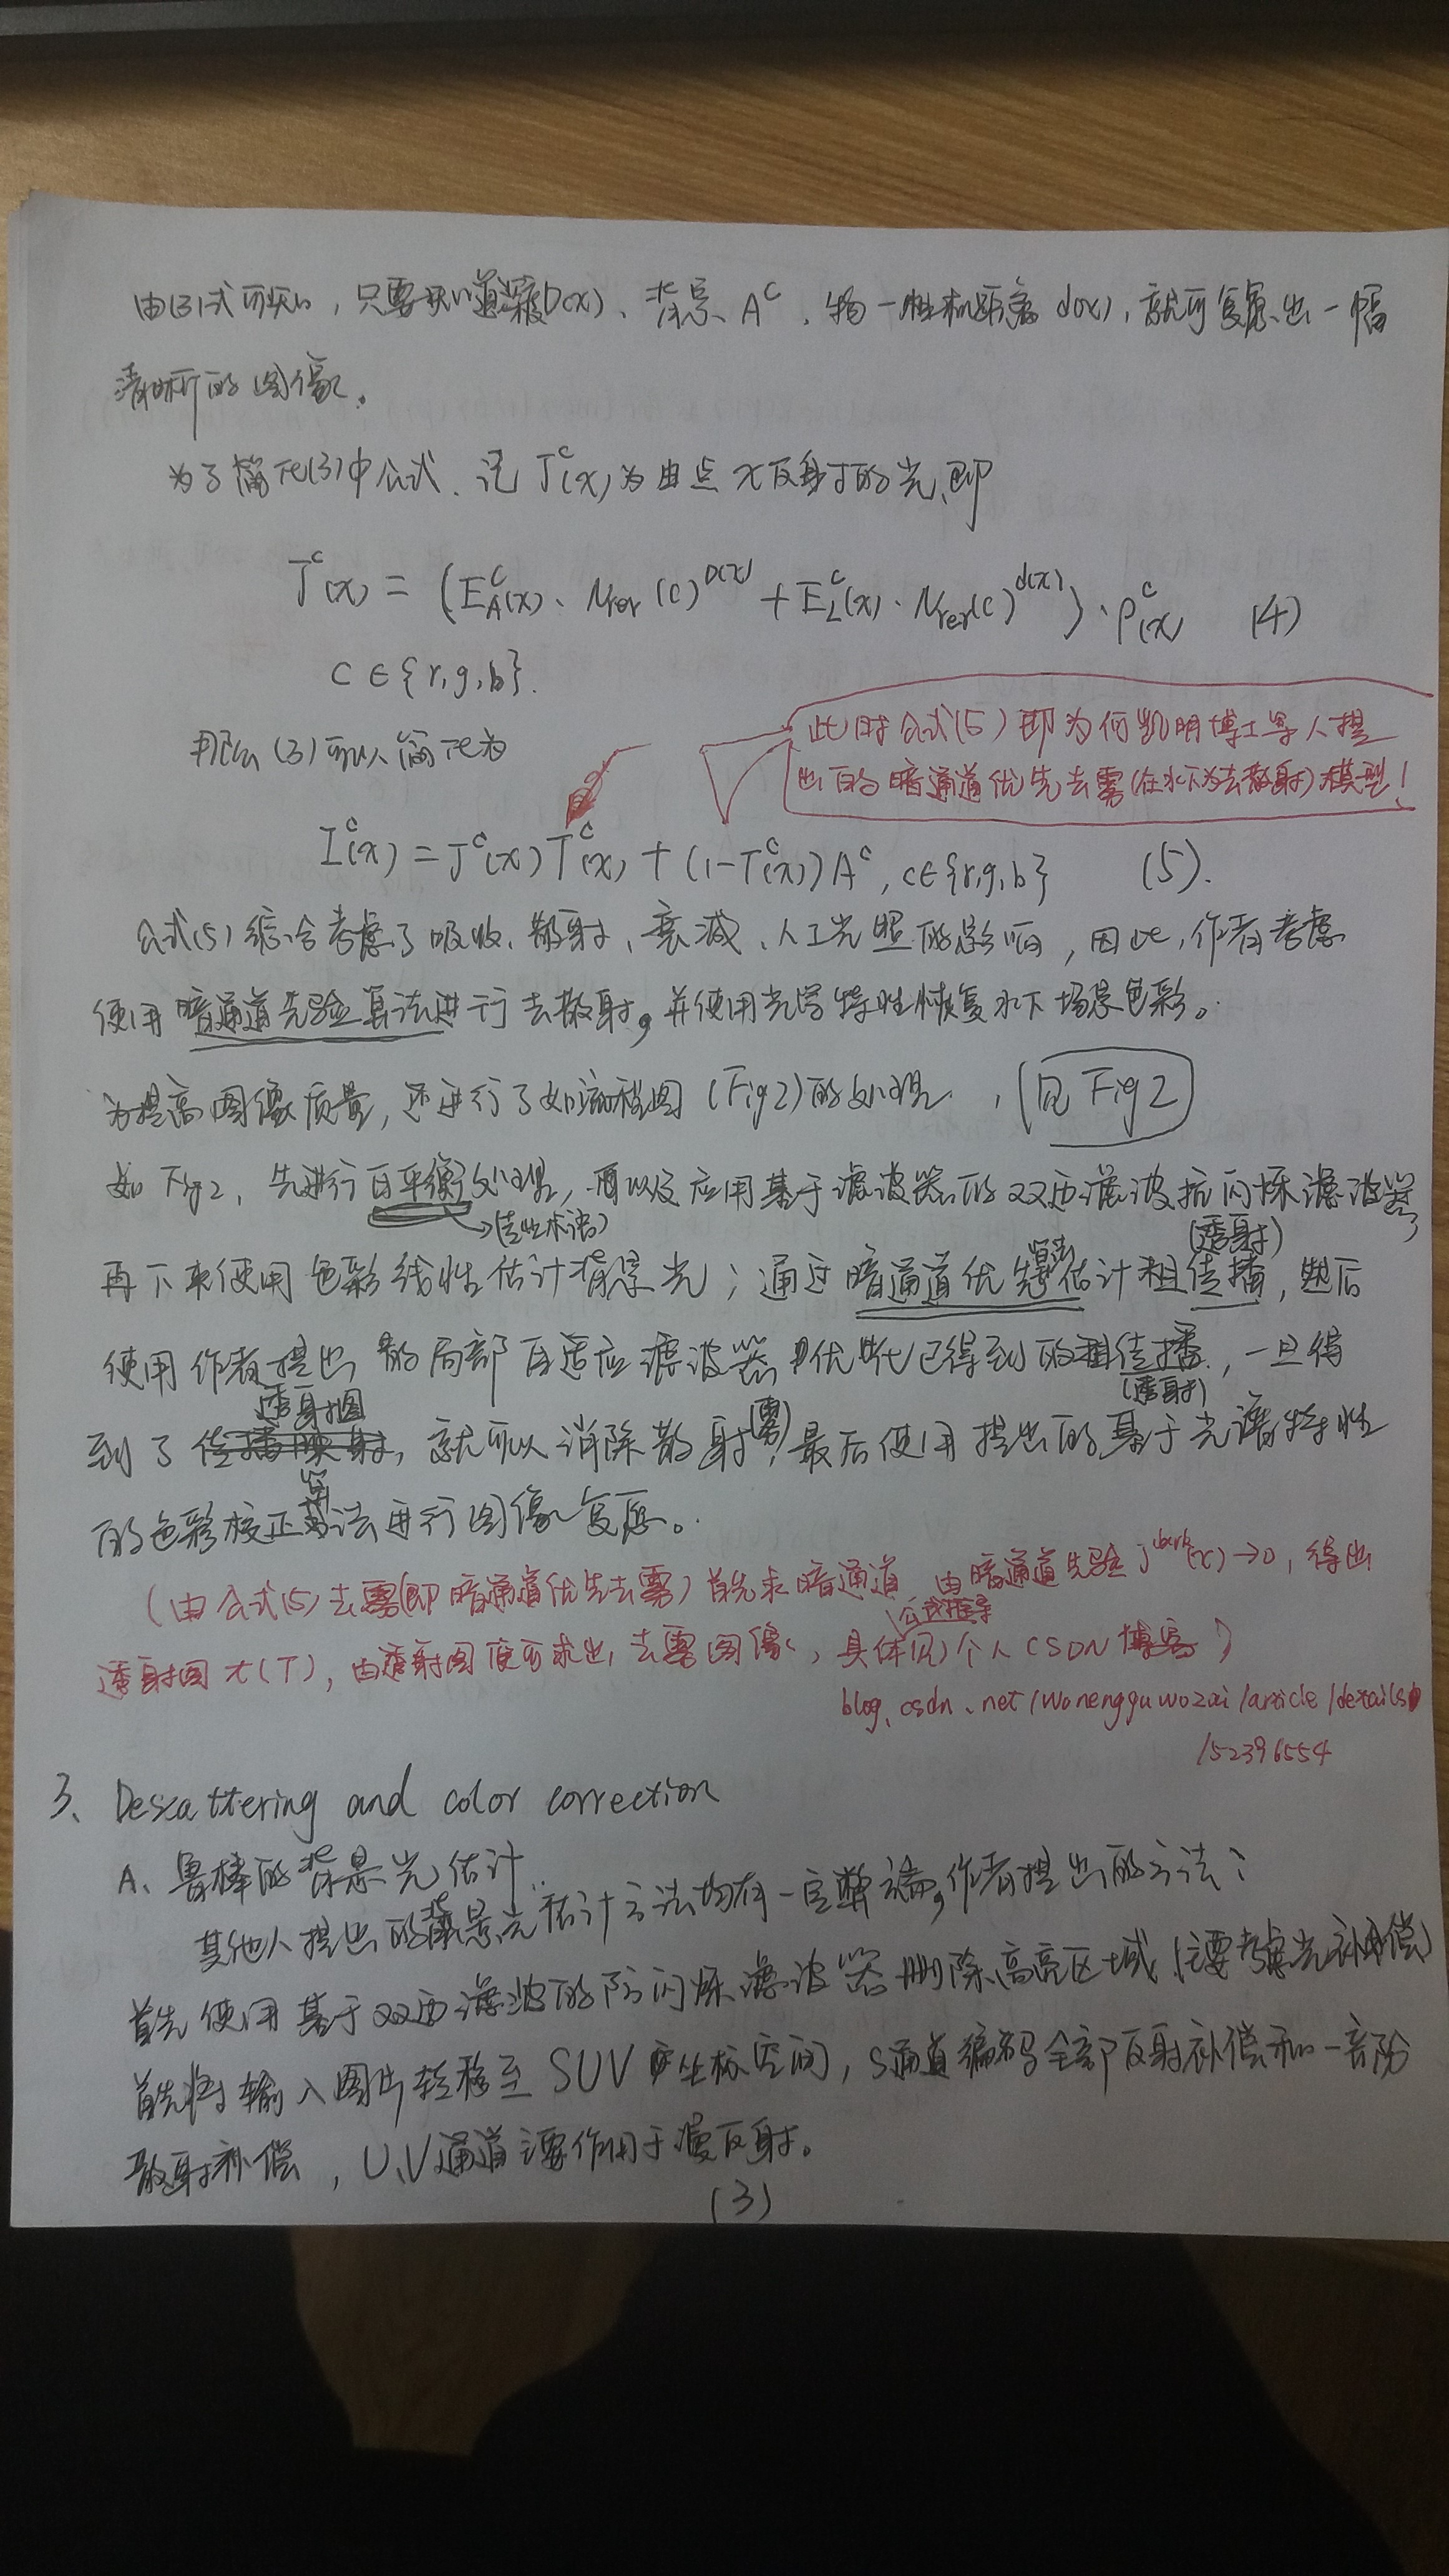 由(3)式可知，只要知道深度D(x)、背景A^c、物—相机距离d(x)，就可复原出一幅
清晰的图像。
为了简化(3)中公式、记J^c(x)为由点x反射的光，即
J^c(x) = (E_A^c(x)·Nrer(c)^D(x) + E_L^c(x)·Nrer(c)^d(x))·ρ^c(x) (4)
c∈{r,g,b}.
那么(3)可以简化为
此时公式(5)即为何凯明博士等人提
出的暗通道优先去雾(在水下为去散射)模型！
I^c(x) = J^c(x)T^c(x) + (1-T^c(x))A^c, c∈{r,g,b} (5).
公式(5)综合考虑了吸收、散射、衰减、人工光照的影响，因此，作者考虑
使用暗通道先验算法进行去散射，并使用光学特性恢复水下场景色彩。
为提高图像质量，还进行了如流程图(Fig2)的处理，(见Fig2
如Fig2，先进行白平衡处理，再以及应用基于滤波器的双边滤波抗闪烁滤波器
→(专业术语)
(透射)
再下来使用色彩线性估计背景光；通过暗通道优先估计粗传播，然后
使用作者提出的局部自适应滤波器优化已得到的粗传播，一旦得
(透射)
透射图
到了传播映射，就可以消除散射(雾)，最后使用提出的基于光谱特性
的色彩校正算法进行图像复原。
(由公式(5)去雾(即暗通道优先去雾)首先求暗通道，由暗通道先验J^dark(x)→0，得出
公式推导
透射图t(T)，由透射图便可求出去雾图像，具体见个人CSDN博客)
blog.csdn.net/wonengguwozai/article/details
/52396554
3、Descattering and color correction
A、鲁棒的背景光估计
其他人提出的背景光估计方法均有一定弊端，作者提出的方法：
首先使用基于双边滤波的防闪烁滤波器删除高亮区域(主要考虑光补偿)
首先将输入图片转移至SUV坐标空间，S通道编码全部反射补偿和一部分
散射补偿，U、V通道主要作用于漫反射。
(3)